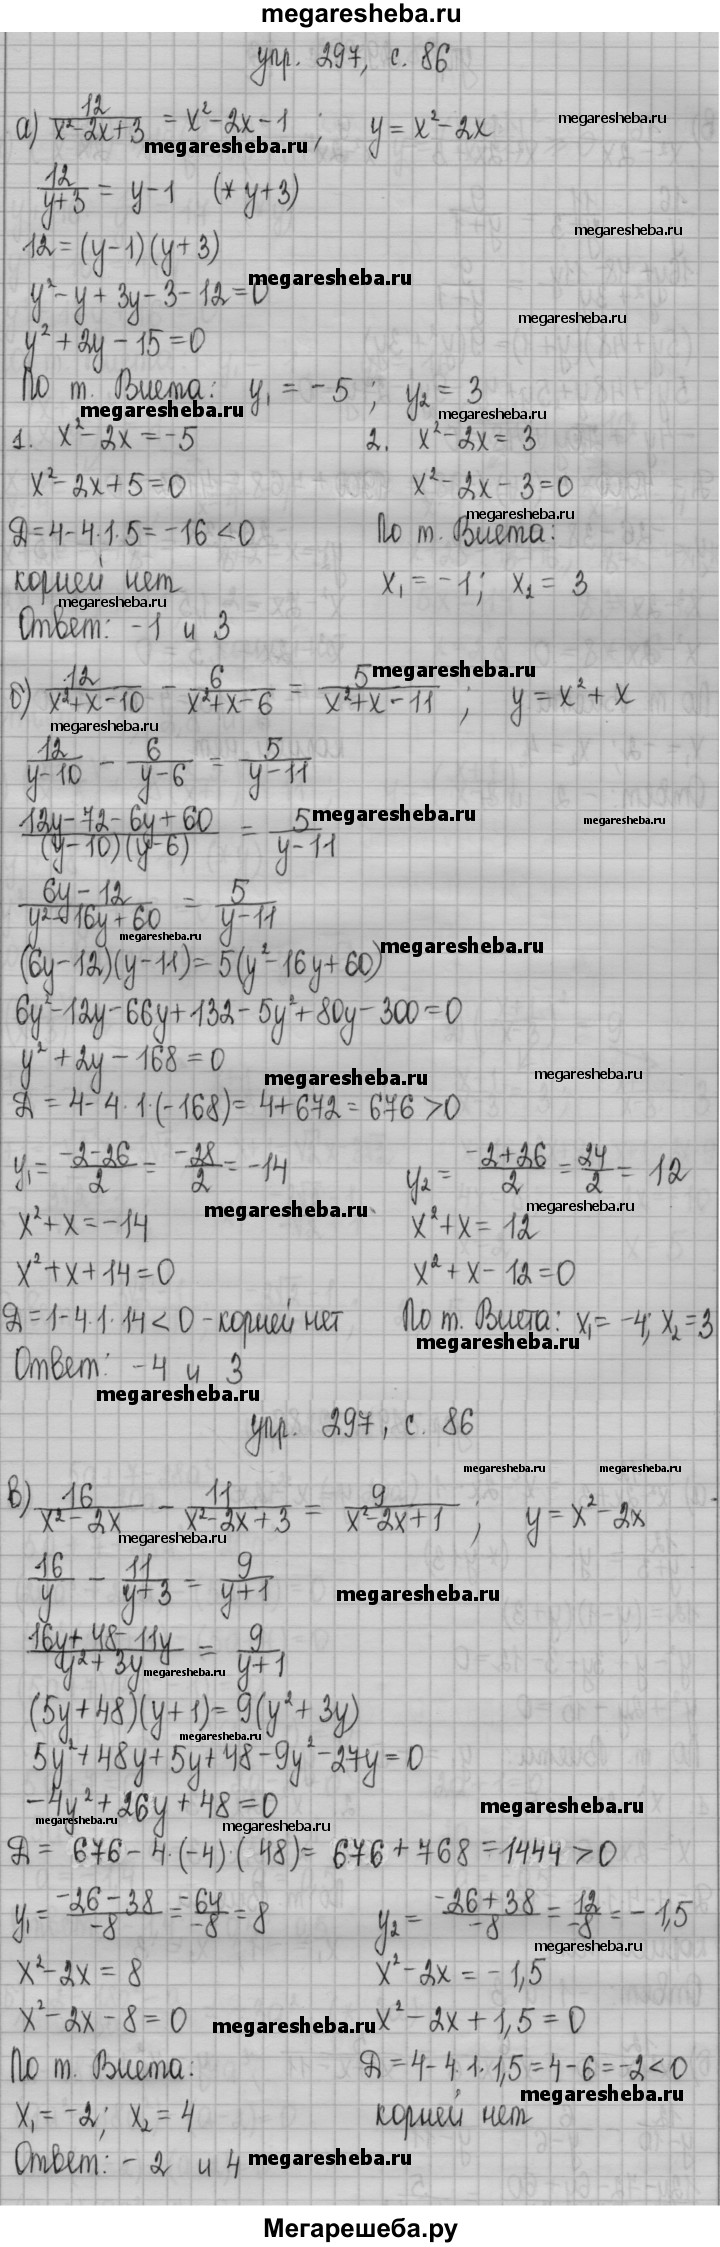 megaresheba.ru
упр. 297, с. 86
а) 12/(x²-2x+3) = x²-2x-1 ; y = x²-2x
megaresheba.ru
megaresheba.ru
12/(y+3) = y-1 (* y+3)
megaresheba.ru
12 = (y-1)(y+3)
megaresheba.ru
y²-y+3y-3-12=0
megaresheba.ru
y²+2y-15=0
По т. Виета: y₁ = -5 ; y₂ = 3
megaresheba.ru megaresheba.ru
1. x²-2x=-5 2. x²-2x=3
x²-2x+5=0 x²-2x-3=0
megaresheba.ru
Д=4-4·1·5=-16<0 По т. Виета:
корней нет x₁=-1; x₂=3
megaresheba.ru
Ответ: -1 и 3
б) 12/(x²+x-10) - 6/(x²+x-6) = 5/(x²+x-11) ; y = x²+x
megaresheba.ru
megaresheba.ru
12/(y-10) - 6/(y-6) = 5/(y-11)
(12y-72-6y+60)/((y-10)(y-6)) = 5/(y-11)
megaresheba.ru megaresheba.ru
(6y-12)/(y²-16y+60) = 5/(y-11)
megaresheba.ru
(6y-12)(y-11)=5(y²-16y+60)
megaresheba.ru
6y²-12y-66y+132-5y²+80y-300=0
y²+2y-168=0
megaresheba.ru megaresheba.ru
Д = 4-4·1·(-168)=4+672=676>0
y₁=(-2-26)/2=-28/2=-14 y₂=(-2+26)/2=24/2=12
megaresheba.ru megaresheba.ru
x²+x=-14 x²+x=12
x²+x+14=0 x²+x-12=0
Д=1-4·1·14<0 - корней нет По т. Виета: x₁=-4; x₂=3
megaresheba.ru
Ответ: -4 и 3
megaresheba.ru
упр. 297, с. 86
megaresheba.ru megaresheba.ru
в) 16/(x²-2x) - 11/(x²-2x+3) = 9/(x²-2x+1) ; y=x²-2x
megaresheba.ru
16/y - 11/(y+3) = 9/(y+1)
megaresheba.ru
(16y+48-11y)/(y²+3y) = 9/(y+1)
megaresheba.ru
(5y+48)(y+1)=9(y²+3y)
megaresheba.ru
5y²+48y+5y+48-9y²-27y=0
-4y²+26y+48=0
megaresheba.ru
megaresheba.ru megaresheba.ru
Д = 676-4·(-4)·( 48)=676+768=1444>0
y₁=(-26-38)/-8=-64/-8=8 y₂=(-26+38)/-8=12/-8=-1,5
megaresheba.ru
x²-2x=8 x²-2x=-1,5
x²-2x-8=0 x²-2x+1,5=0
megaresheba.ru
По т. Виета: Д=4-4·1·1,5=4-6=-2<0
megaresheba.ru
x₁=-2; x₂=4 корней нет
Ответ: -2 и 4
megaresheba.ru
Мегарешеба.ру